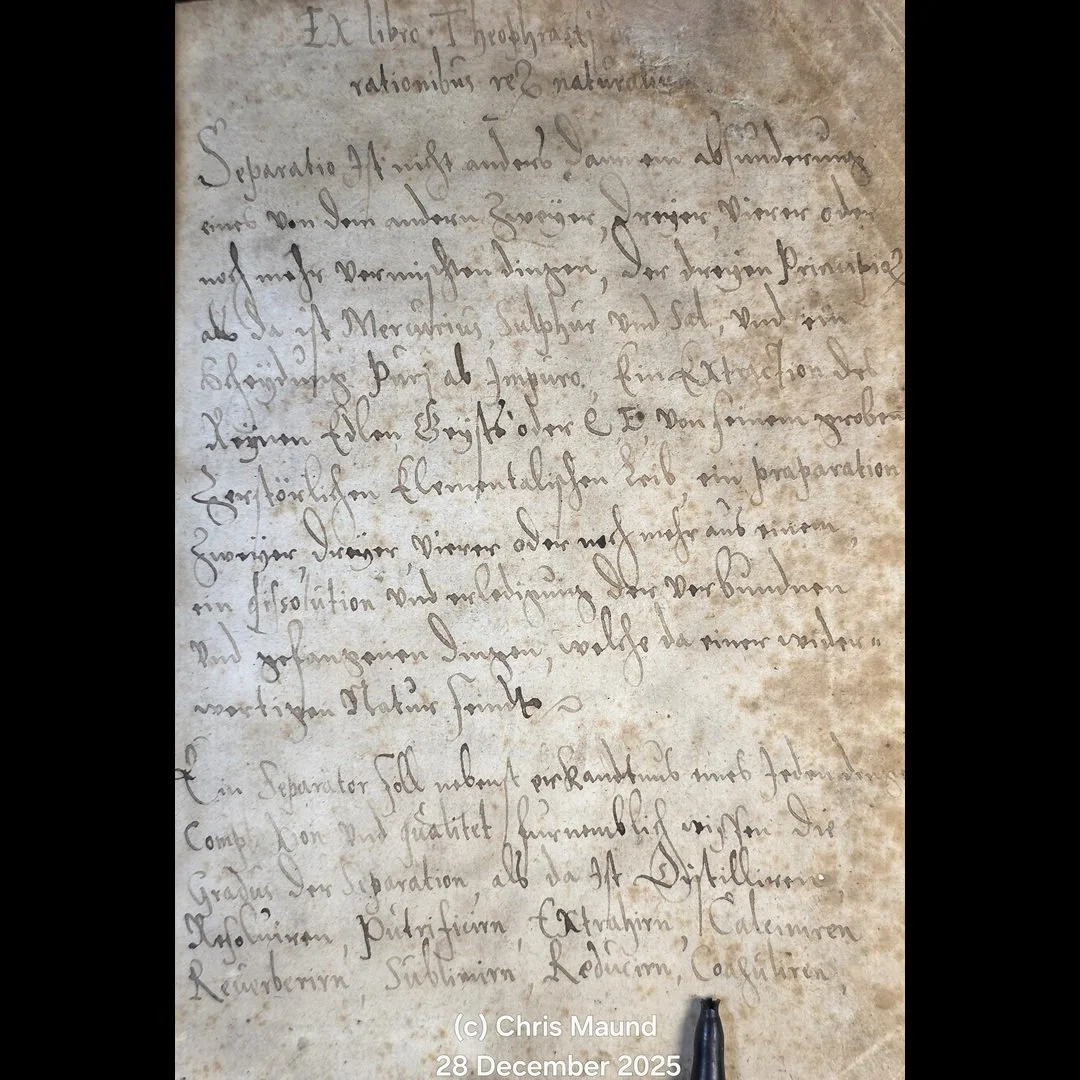 EX libro Theophrasti
rationibus reꝝ naturaliū
Separatio Ist nicht anders, dann ein absünderüng
eines von dem andern Zweÿer, Dreyer, Vierer oder
noch mehr vermischten dingen, der dreyen Principioꝝ
als da ist Mercürius, Sulphür vnd Sal, vnd ein
Scheÿdüng Püri ab Impuro, Ein EXtraction des
Reÿnen Edlen Geÿsts oder Q E, von seinem groben
Zerstörlichen Elementalischen Leib, ein præparation
Zweÿer, dreÿer, vierer oder noch mehr aüs einem,
ein dissolütion vnd erledigüng der verbündnen
vnd gefangenen dingen, welche da einer wider=
wertigen Natür seindt
Ein Separator soll nebenst erkandtnüs eines Jeden dings
vnd qüalitet, fürnemblich wissen die
Gradüs der Separation, als da Ist Dÿstilliren,
Resolviren, Pütrificirn, EXtrahirn, Calciniren
Reüerberirn, Süblimirn, Redücirn, Coagüliren,
(c) Chris Maund
28 December 2025